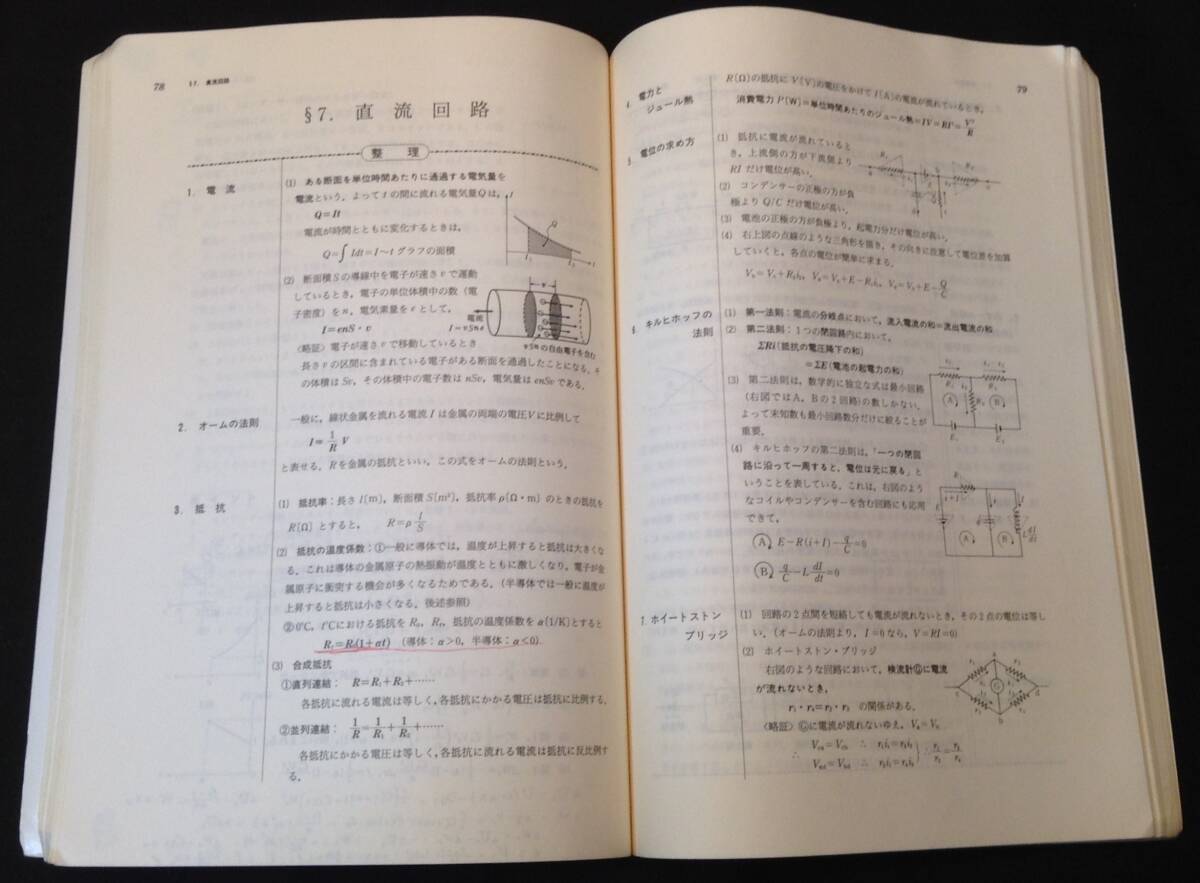 78
§7. 直流回路
§7. 直流回路
整理
1. 電流
(1) ある断面を単位時間あたりに通過する電気量を
電流という。よって t の間に流れる電気量Qは，
Q=It
電流が時間とともに変化するときは，
Q=∫Idt=I〜t グラフの面積
I
Q
t
(2) 断面積Sの導線中を電子が速さvで運動
しているとき，電子の単位体積中の数（電
子密度）をn，電気素量をeとして，
I=enS・v
電流
I=vSne
vSnの自由電子を含む
〈略証〉電子が速さvで移動しているとき
長さvの区間に含まれている電子がある断面を通過したことになる。そ
の体積はSv，その体積中の電子数はnSv，電気量はenSvである。
2. オームの法則
一般に，線状金属を流れる電流Iは金属の両端の電圧Vに比例して
I=1/R V
と表せる。Rを金属の抵抗といい，この式をオームの法則という。
3. 抵抗
(1) 抵抗率：長さl[m]，断面積S[m²]，抵抗率ρ[Ω・m]のときの抵抗を
R[Ω]とすると， R=ρ l/S
(2) 抵抗の温度係数：①一般に導体では，温度が上昇すると抵抗は大きくな
る。これは導体の金属原子の熱振動が温度とともに激しくなり，電子が金
属原子に衝突する機会が多くなるためである。（半導体では一般に温度が
上昇すると抵抗は小さくなる。後述参照）
②0℃，t℃における抵抗をR₀，Rₜ，抵抗の温度係数をα[1/K]とすると
Rₜ=R₀(1+αt) （導体：α>0，半導体：α<0）
(3) 合成抵抗
①直列連結： R=R₁+R₂+……
各抵抗に流れる電流は等しく，各抵抗にかかる電圧は抵抗に比例する。
②並列連結： 1/R=1/R₁+1/R₂+……
各抵抗にかかる電圧は等しく，各抵抗に流れる電流は抵抗に反比例す
る。
79
4. 電力と
ジュール熱
R[Ω]の抵抗にV[V]の電圧をかけてI[A]の電流が流れているとき，
消費電力P[W]=単位時間あたりのジュール熱=IV=RI²=V²/R
5. 電位の求め方
(1) 抵抗に電流が流れていると
き，上流側の方が下流側より
RIだけ電位が高い。
(2) コンデンサーの正極の方が負
極よりQ/Cだけ電位が高い。
(3) 電池の正極の方が負極より，起電力分だけ電位が高い。
(4) 右上図の点線のような三角形を描き，その向きに注意して電位差を加算
していくと，各点の電位が簡単に求まる。
6. キルヒホッフの
法則
(1) 第一法則：電流の分岐点において，流入電流の和=流出電流の和
(2) 第二法則：1つの閉回路内において，
ΣRi（抵抗の電圧降下の和）
=ΣE（電池の起電力の和）
(3) 第二法則は，数学的に独立な式は最小回路
（右図ではA，Bの2回路）の数しかない。
よって未知数も最小回路数分だけに絞ることが
重要。
A
B
(4) キルヒホッフの第二法則は，「一つの閉回
路に沿って一周すると，電位は元に戻る」と
いうことを表している。これは，右図のよう
なコイルやコンデンサーを含む回路にも応用
できて，
Ⓐ E-R(i+I)-q/C=0
Ⓑ q/C-L dI/dt=0
A
B
7. ホイートストン
ブリッジ
(1) 回路の2点間を短絡しても電流が流れないとき，その2点の電位は等し
い。（オームの法則より，I=0なら，V=RI=0）
(2) ホイートストン・ブリッジ
右図のような回路において，検流計Ⓖに電流
が流れないとき，
r₁・r₄=r₂・r₃ の関係がある。
〈略証〉Ⓖに電流が流れないゆえ，Vₐ=V_b
G